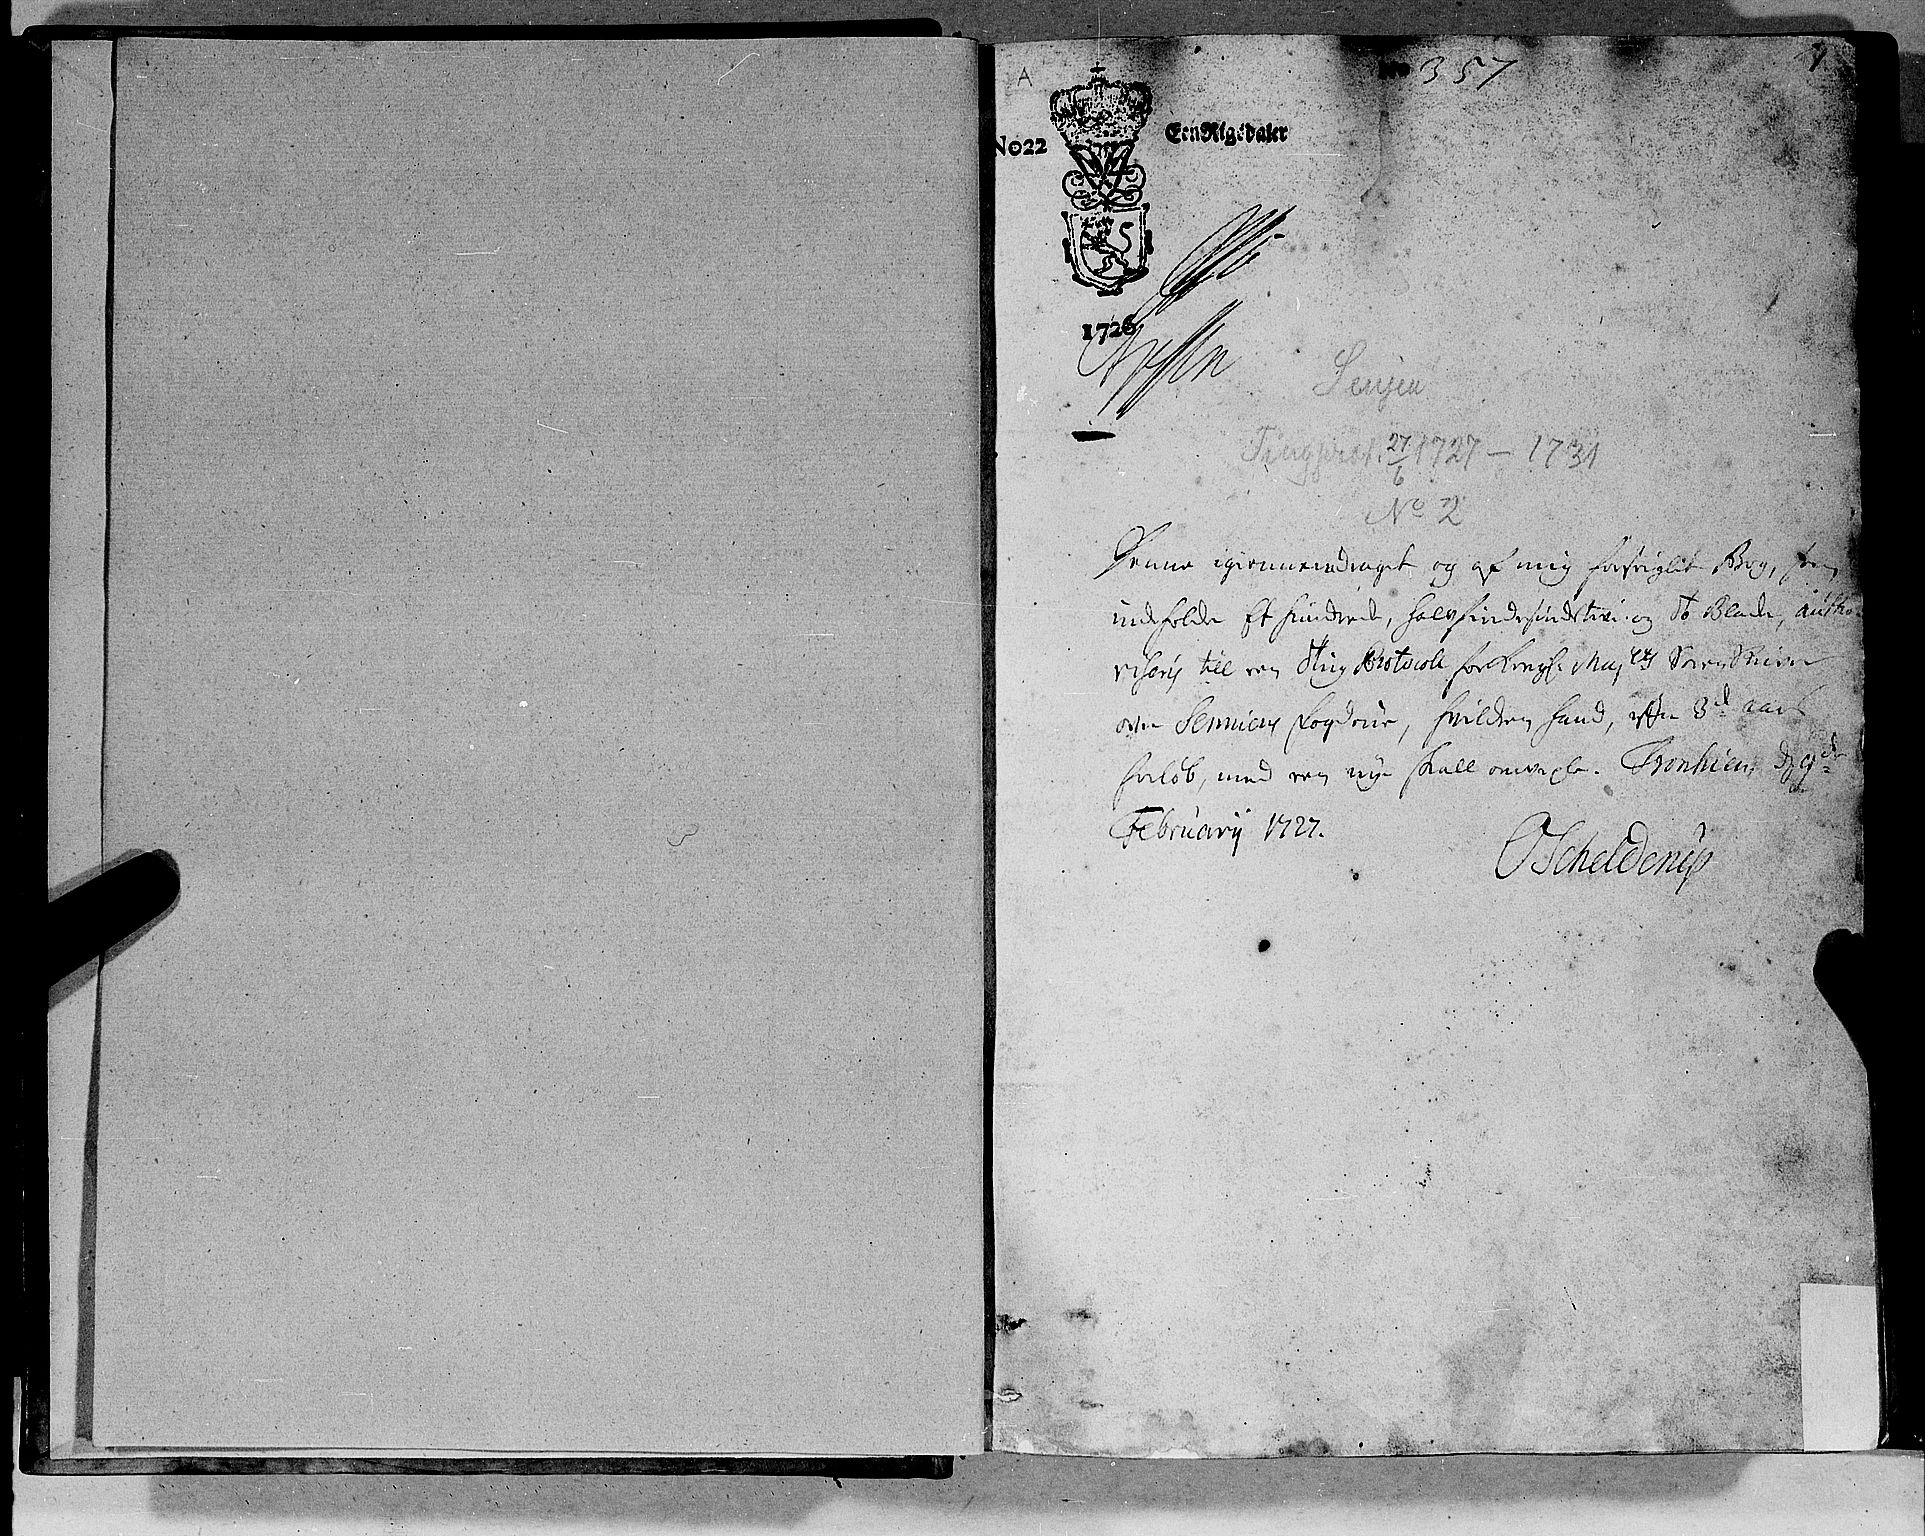 No 357
1
A
No 22
Een Rigsdaler
1726
Senjen
Tingprot. 27/6 1727 – 1731
No 2
Denne igiennemdragit og af mig forseiglit Bog, som
indeholder Et hundrede, halvfindesindstiuve og to Blade, autho-
riseris till een Ting Protocoll for Kongl. Maj.ts Sorenskriver
over Senniens Fogderie, hvilchen hand, efter 3d aars
forløb, med een nye skall omvexle. Tronhiem d 9de
Februarij 1727.
O Schelderup